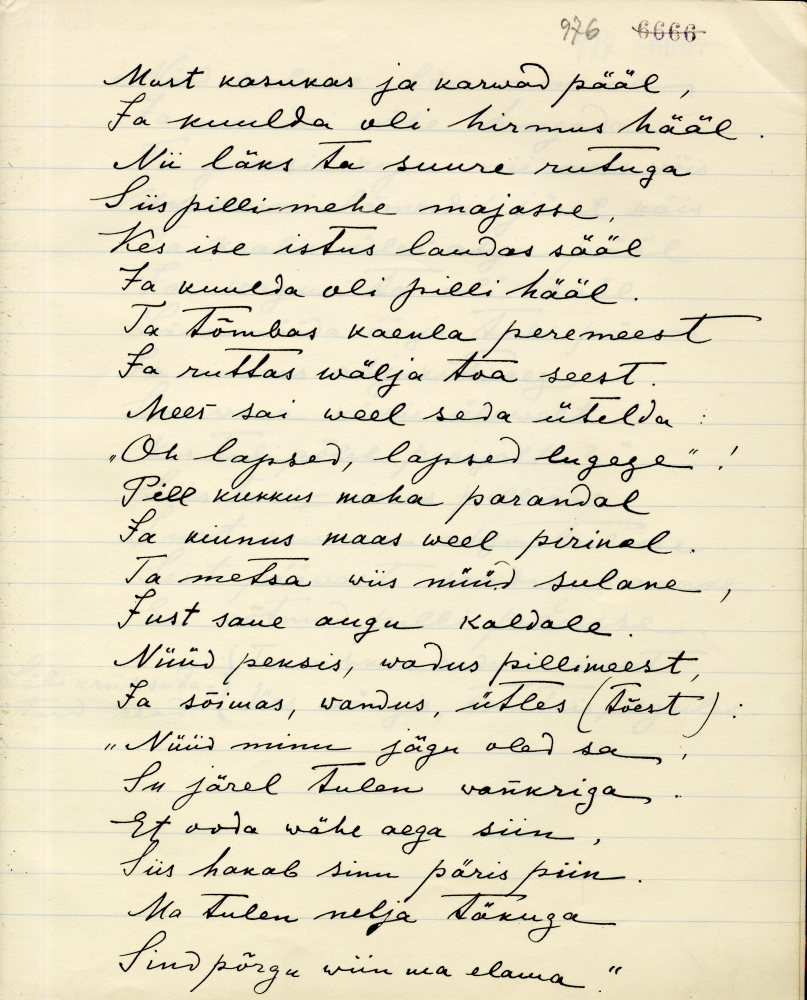 976 6666
Must kasukas ja karwad pääl,
Ja kuulda oli hirmus hääl.
Nii läks ta suure rutuga
Siis pillimehe majasse,
Kes ise istus laudas sääl
Ja kuulda oli pilli hääl.
Ta tõmbas kaenla peremeest
Ja ruttas wälja toa seest.
Mees sai weel seda ütelda:
„Oh lapsed, lapsed lugege"!
Pill kukkus maha parandal
Ja kiunus maas weel pirinal.
Ta metsa wiis nüüd sulane,
Just saue augu kaldale.
Nüüd peksis, wadus pillimeest,
Ja sõimas, wandus, ütles (tõest):
„Nüüd minu jägu oled sa,
Su järel tulen wankriga.
Et ooda wähe aega siin,
Siis hakab sinu päris piin.
Ma tulen nelja täkuga
Sind põrgu wiin ma elama."